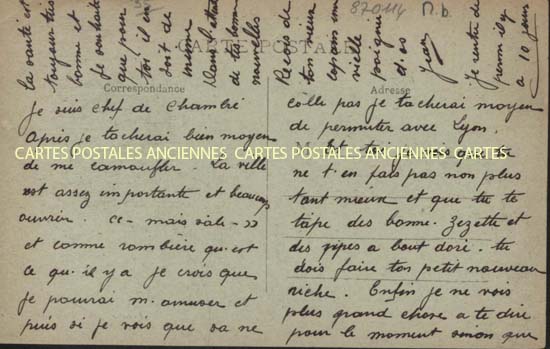 Je suis chef de Chambré
Après je tacherai bien moyen
CARTES POSTALES ANCIENNES CARTES POSTALES ANCIENNES CARTES
de me camoufler. La ville
est assez importante et beaucoup
ouvrier. Ce mais
et comme rombière qu'est
ce qu'il y a je crois que
je pourrai m'amuser et
puis si je vois que sa ne
colle pas je tacherai moyen
de permuter avec Lyon.
Et toi je vois que
ne t'en fais pas non plus
tant mieux et que tu te
tape des bonne Zezette et
des pipes a bout doré. tu
dois faire ton petit nouveau
riche. Enfin je ne vois
plus grand chose a te dire
pour le moment sinon que
la santé est
toujour très
bonne et
je souhaite
que pour
toi il en
soit de
meme
Dans l'attente
de tes bonne
nouvelles
Recois de
ton vieux
copain une
vieille
poigné
d.
Jean
je rentre de
perm il y
a 10 jours
870114
M.b
CARTE POSTALE
Correspondance
Adresse